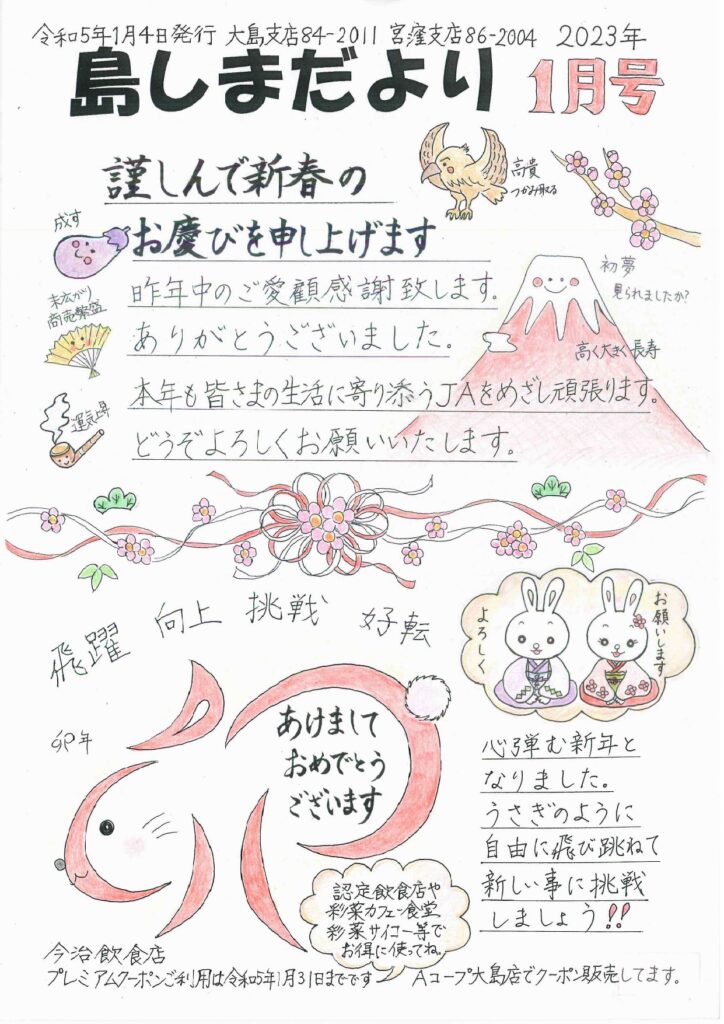 令和5年1月4日発行 大島支店84-2011 宮窪支店86-2004 2023年
島しまだより 1月号
謹しんで新春の
お慶びを申し上げます
高貴
つかみ取る
成す
昨年中のご愛顧感謝致します。
ありがとうございました。
初夢
見られましたか?
末広がり
商売繁盛
高く大きく長寿
本年も皆さまの生活に寄り添うJAをめざし頑張ります。
どうぞよろしくお願いいたします。
運気上昇
飛躍 向上 挑戦 好転
お願いします
よろしく
卯年
あけまして
おめでとう
ございます
心弾む新年と
なりました。
うさぎのように
自由に飛び跳ねて
新しい事に挑戦
しましょう!!
認定飲食店や
彩菜カフェ食堂
彩菜サイコー等で
お得に使ってね。
今治飲食店
プレミアムクーポンご利用は令和5年1月31日までです
Aコープ大島店でクーポン販売してます。